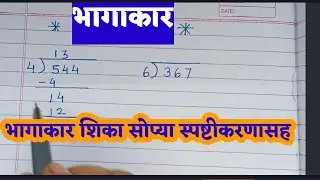 भागाकार
13
4) 544 6) 367
-4
14
12
भागाकार शिका सोप्या स्पष्टीकरणासह